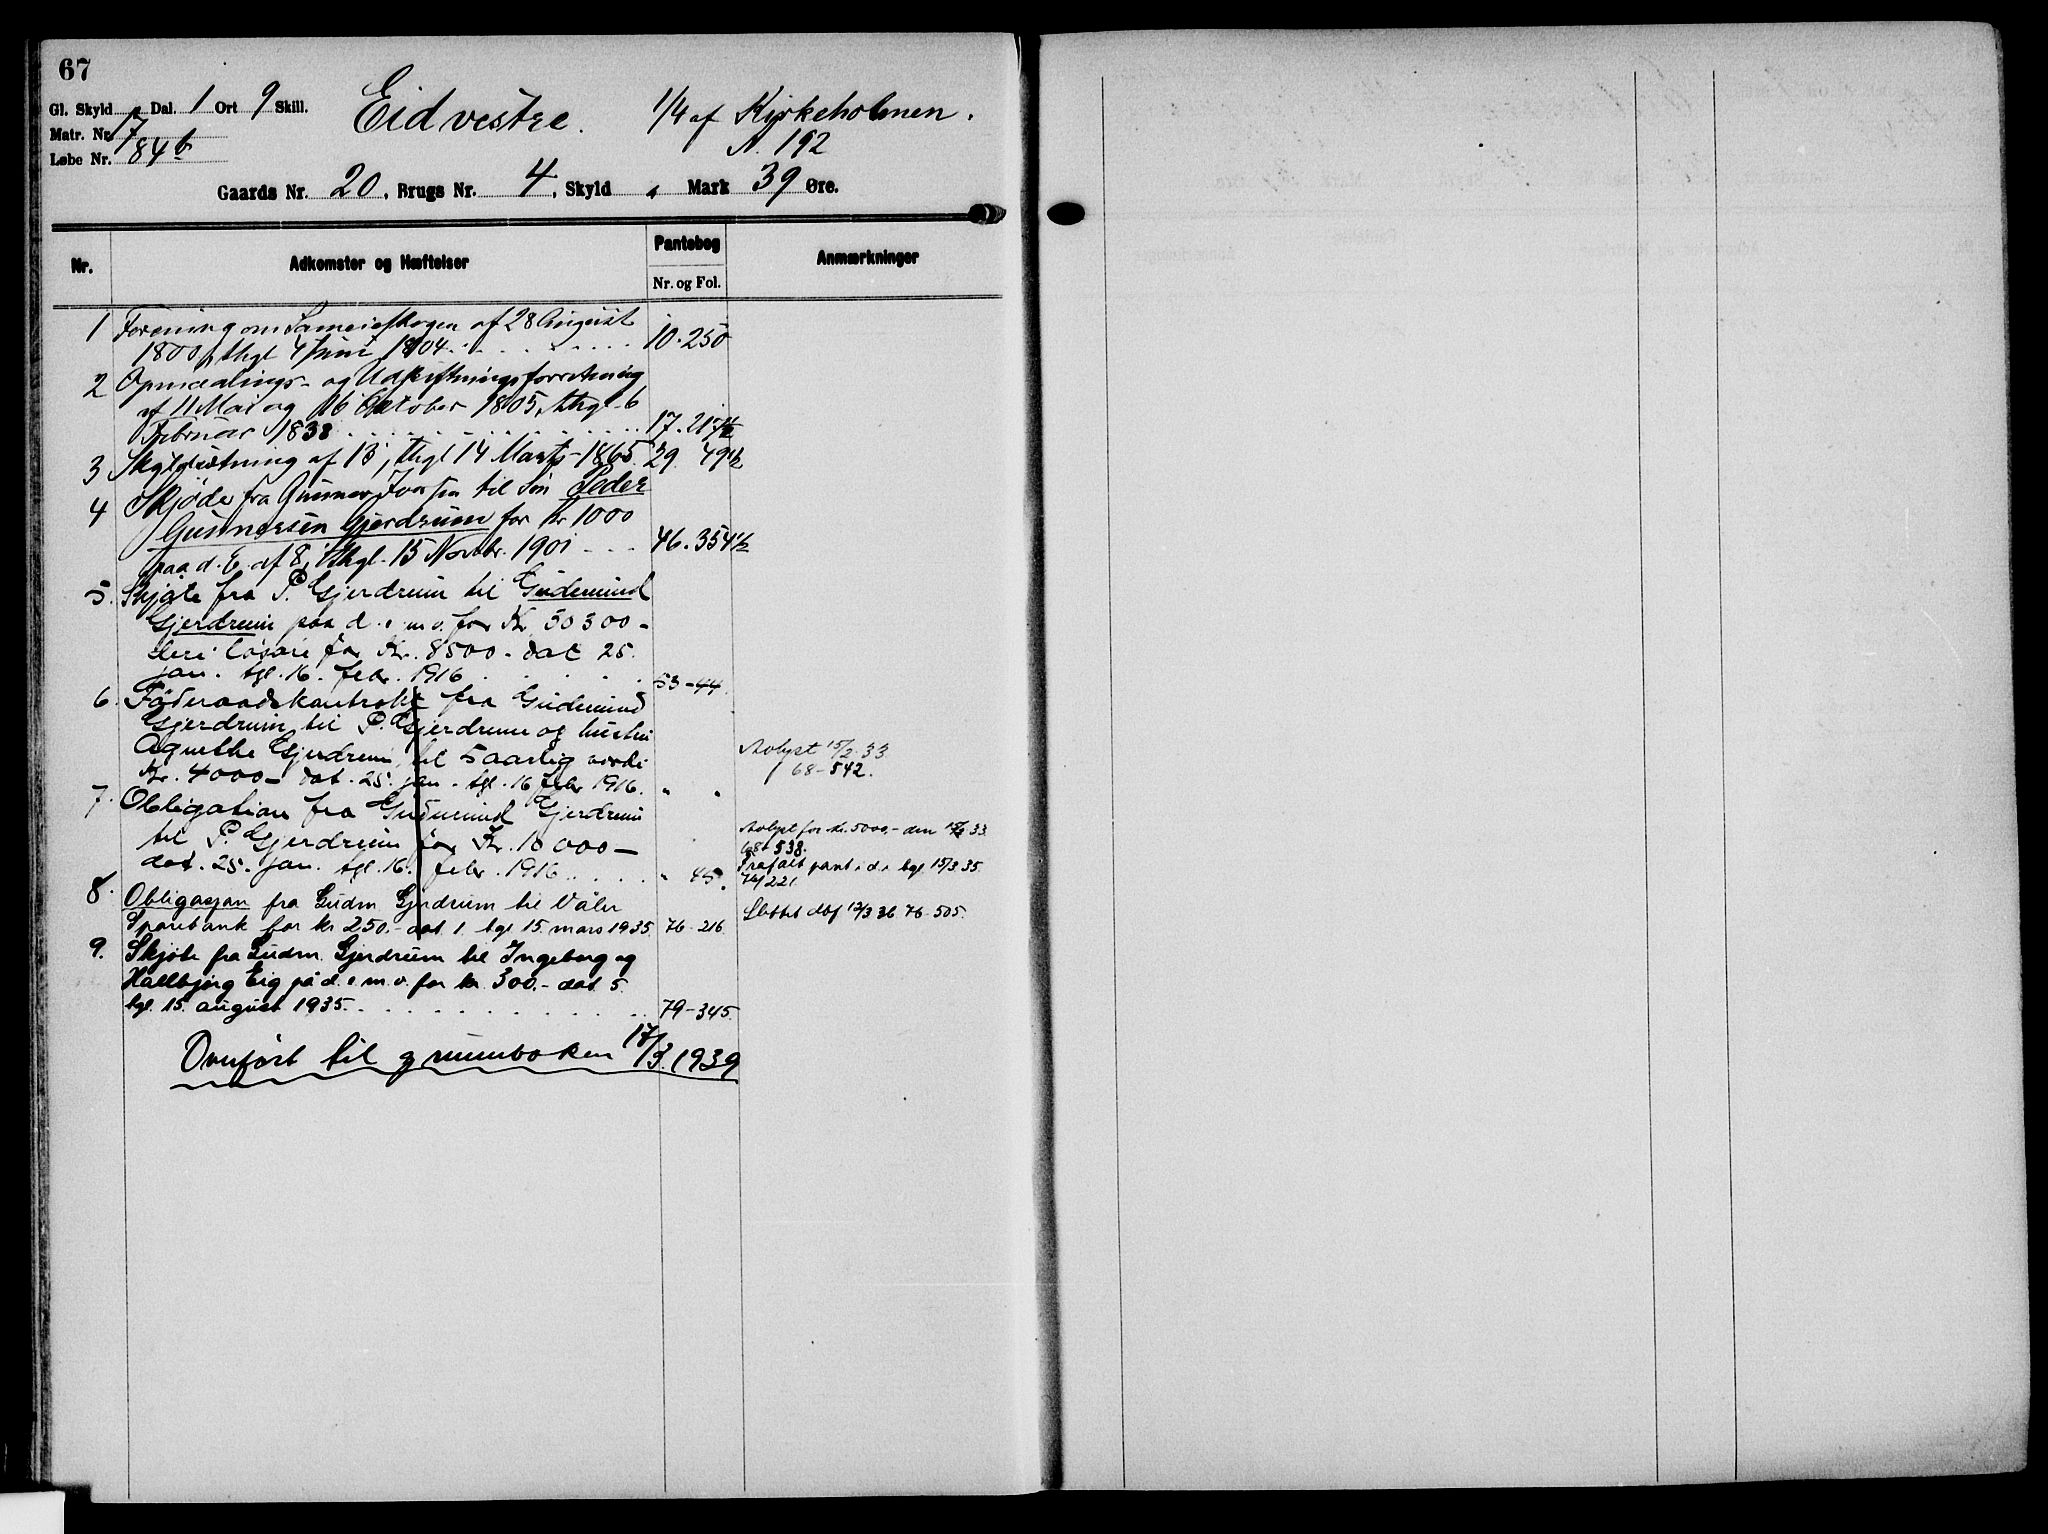 67
Gl. Skyld „ Dal. 1 Ort 9 Skill.
Matr. Nr. 17
Løbe Nr. 84b
Eid vestre. 1/4 af Kirkeholmen.
N. 192
Gaards Nr. 20, Brugs Nr. 4, Skyld „ Mark 39 Øre.
Nr. Adkomster og Hæftelser Pantebog Nr. og Fol. Anmærkninger
1 Forening om Sameieskogen af 28 August
1800, thgl 4 Juni 1804 10.250
2 Opmaalings- og Udskiftningsforretning
af 11 Mai og 16 Oktober 1805, thgl 6
Februar 1838 17.217 1/2
3 Skyldeling af 13, thgl 14 Marts 1865. 29. 49 1/2
4 Skjøde fra Gunner Iversen til Søn Peder
Gunnersen Gjerdrum for Kr 1000
paa d. E. af 8, thgl. 15 Novbr. 1901 46.354 1/2
5. Skjøte fra P. Gjerdrum til Gudmund
Gjerdrum paa d. e m. v. for Kr. 30300-
deri løsøre for Kr. 8500- dat 25.
jan. tgl. 16. febr. 1916 53-44.
6. Føderaadskontrakt fra Gudmund
Gjerdrum til P. Gjerdrum og hustru
Agnethe Gjerdrum, til 5 aarlig værdi
Kr. 4000- dat. 25. jan. tgl. 16 febr 1916. " "
Avlyst 15/2 33
68-542.
7. Obligation fra Gudmund Gjerdrum
til P. Gjerdrum for Kr. 10 000-
dat. 25. jan. tgl. 16. febr. 1916 " 45.
Avlyst for kr. 5000.- den 33.
68-538.
Frafalt pant i d. tgl. 15/3 35.
76/221.
8. Obligasjon fra Gudm. Gjerdrum til Våler
Sparebank for kr 250.- dat 1. tgl 15. mars 1935. 76-216.
Slettet 12/3 36. 76-505.
9. Skjøte fra Gudm. Gjerdrum til Ingeborg og
Hallbjørg Eig på d. e. m. v. for kr. 300.- dat 5.
tgl. 15. august 1935. 79-345.
Overført til grunnboken 17/3.1939